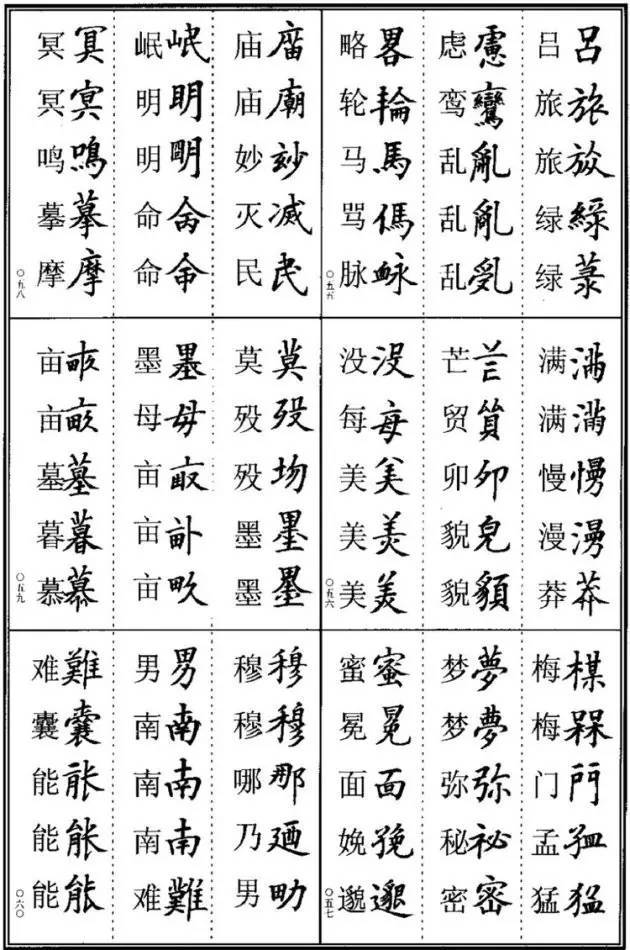 吕呂
旅旅
旅㫊
绿綠
绿菉
虑慮
鸾鸞
乱亂
乱亂
乱乿
略畧
轮輪
马馬
骂傌
脉衇
〇五五
满滿
满滿
慢慢
漫漫
莽莽
芒芒
贸貿
卯卯
貌皃
貌貌
没没
每每
美美
美美
美美
〇五六
梅楳
梅槑
门門
孟孟
猛猛
梦夢
梦夢
弥弥
秘祕
密密
蜜蜜
冕冕
面面
娩娩
邈邈
〇五七
庙庿
庙廟
妙玅
灭滅
民民
岷岷
明明
明朙
命命
命命
冥冥
冥冥
鸣鳴
摹摹
摩摩
〇五八
莫莫
殁殁
殁歾
墨墨
墨墨
墨墨
母母
亩畞
亩畝
亩畝
亩畝
亩畝
墓墓
暮暮
慕慕
〇五九
穆穆
穆穆
哪那
乃廼
男男
男男
南南
南南
南南
难難
难難
囊囊
能能
能能
能能
〇六〇